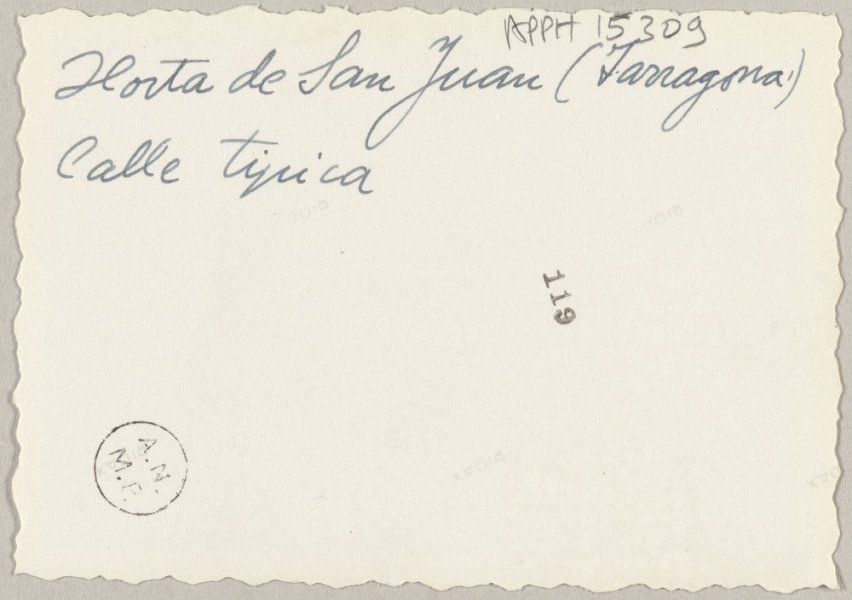 APPH 15309
Horta de San Juan (Tarragona)
Calle tipica
119
A.N.
M.P.